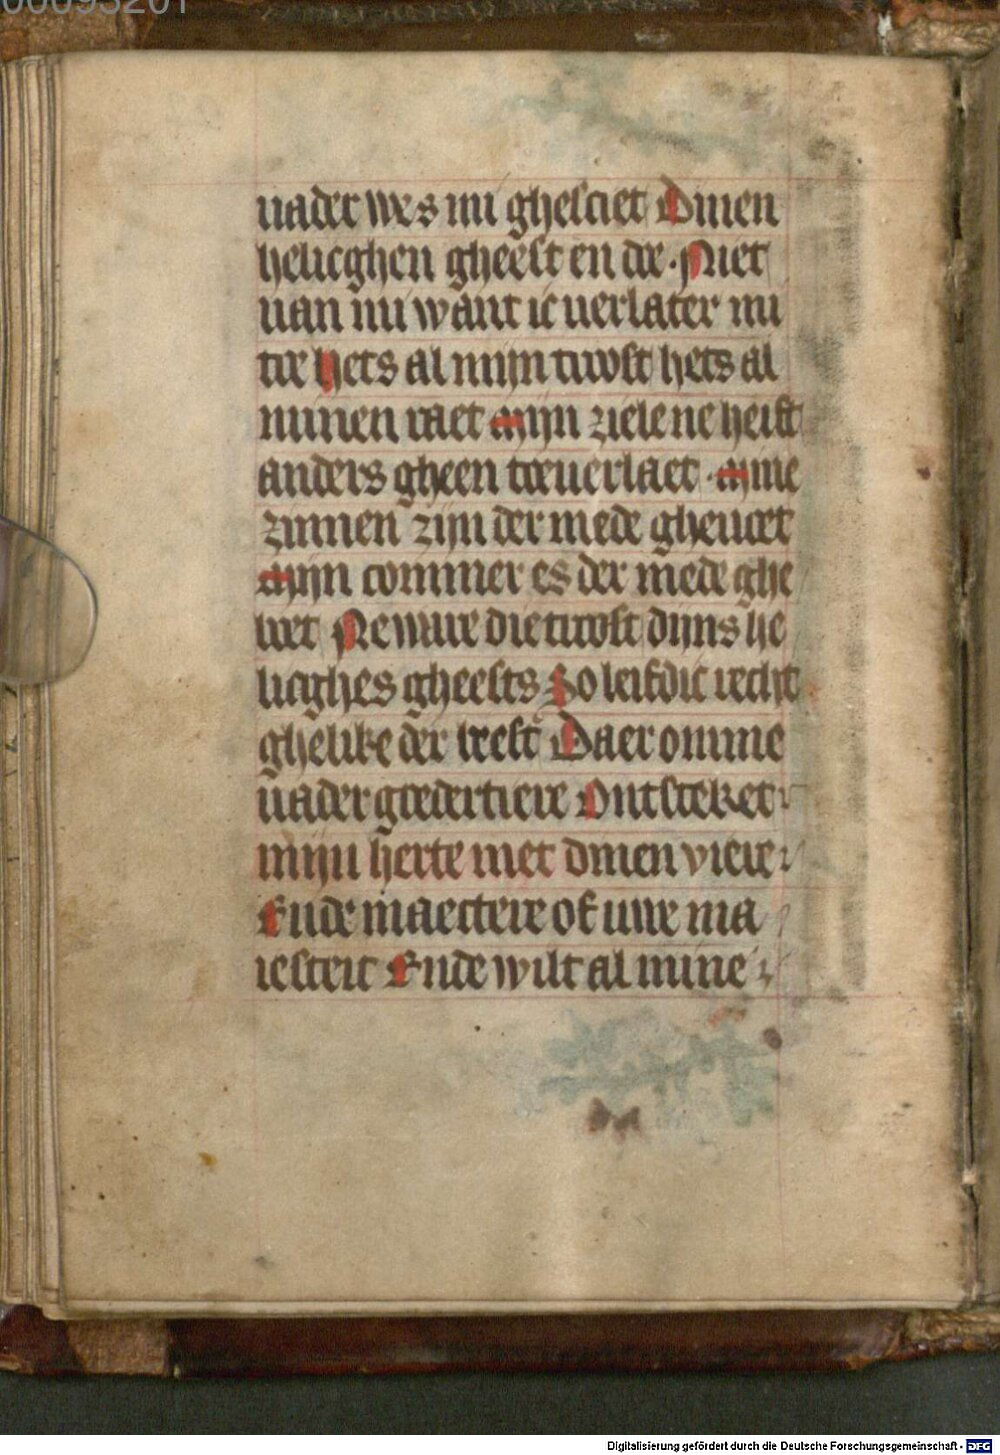 00095201
uader wes mi ghesciet Dinen
heilicghen gheest en doe · Niet
uan mi want ic uerlater mi
toe Hets al mijn troost hets al
minen raet Mijn ziele ne heift
anders gheen toeuerlaet · Mine
zinnen zijn der mede gheuoet
Mijn commer es der mede ghe
boet Ne ware die troost dijns he
licghes gheests Zo leifdic recht
ghelike der beest Daer omme
uader goedertiere Ontsteket
mijn herte met dinen viere
Ende maectere of uwe ma
iesteit Ende wilt al mine
Digitalisierung gefördert durch die Deutsche Forschungsgemeinschaft - DFG